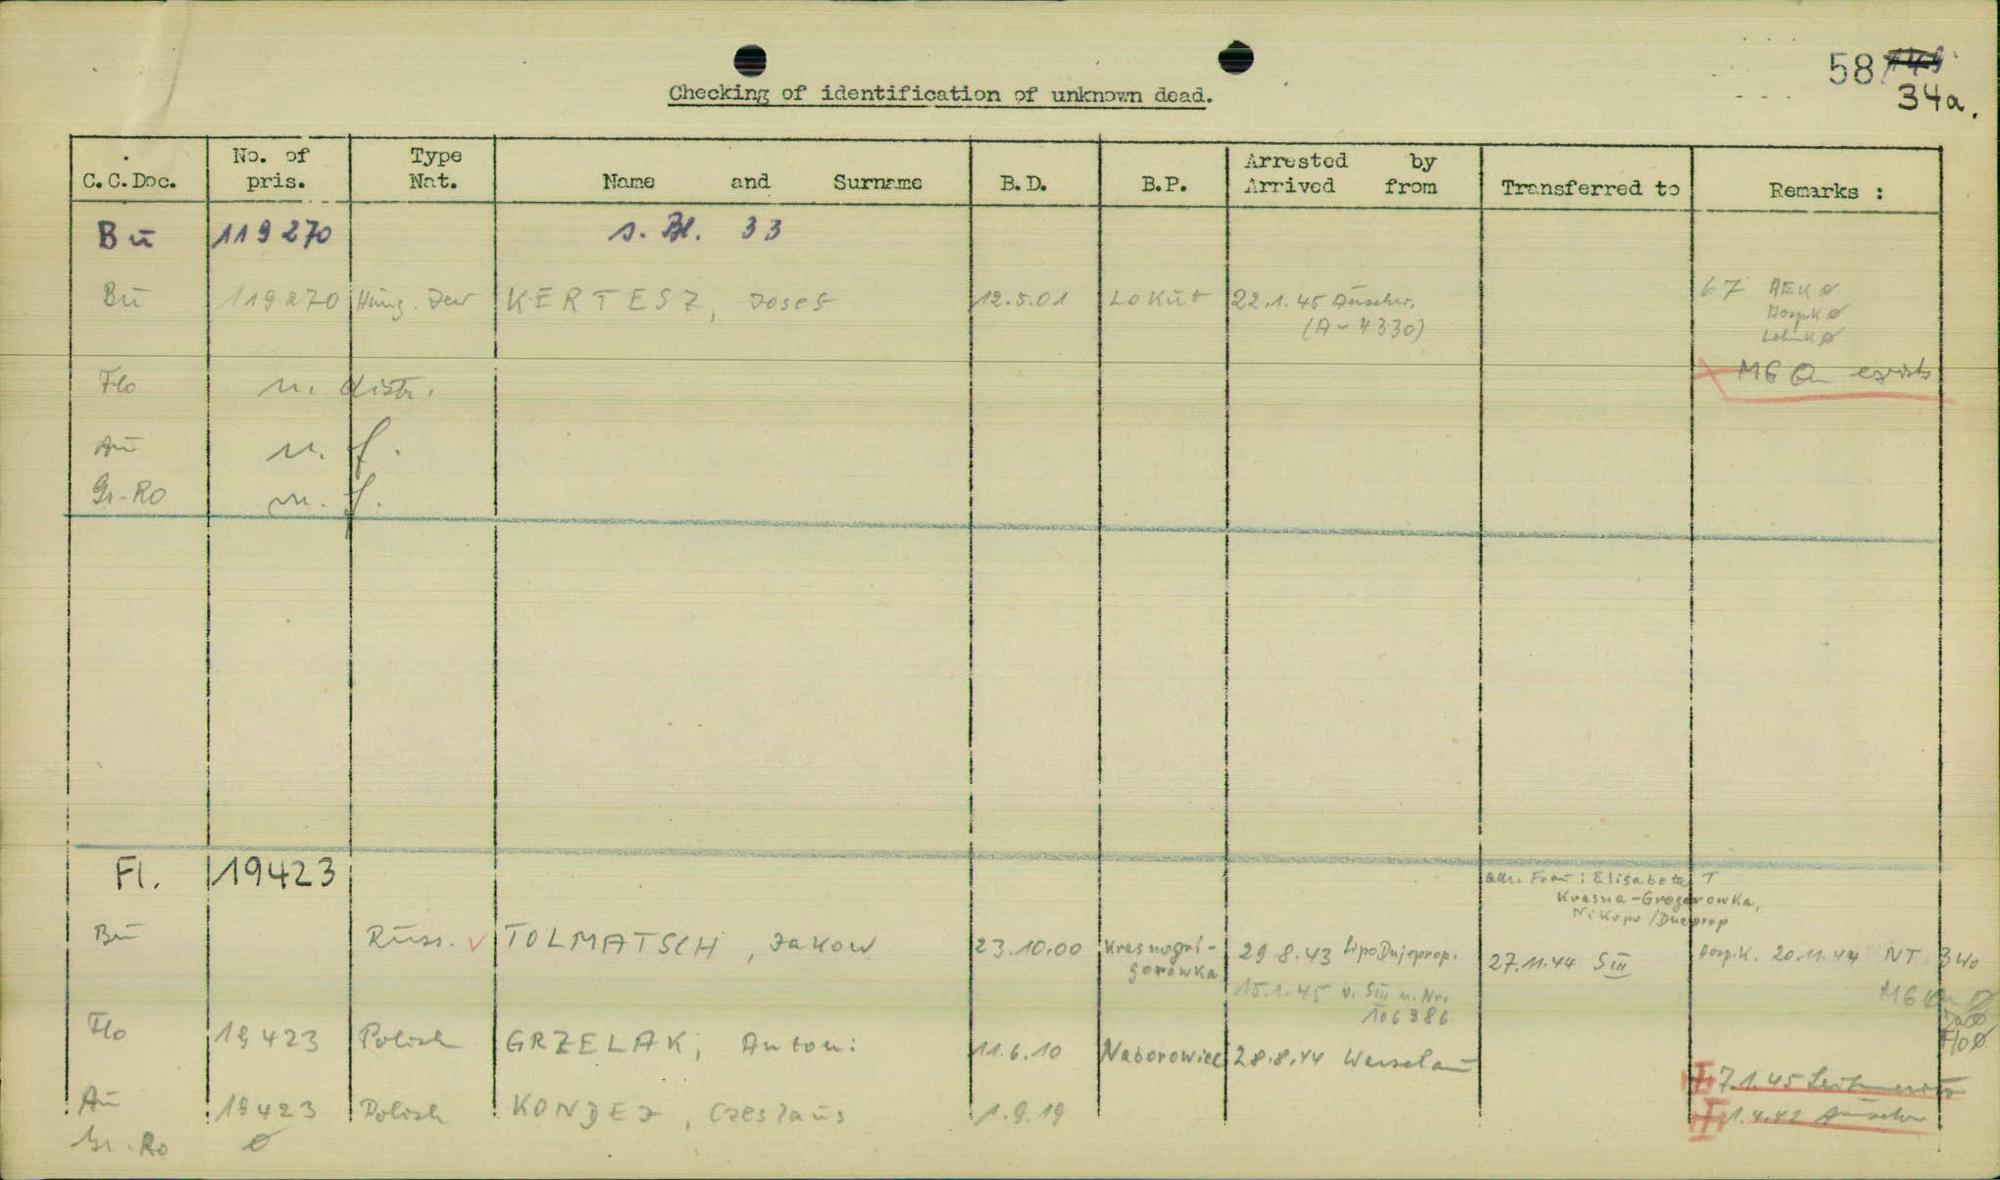 58 149
34a.
Checking of identification of unknown dead.
C.C.Doc. No. of pris. Type Nat. Name and Surname B.D. B.P. Arrested by Arrived from Transferred to Remarks :
Bū 119270 s. Bl. 33
Bū 119270 Hung. Jew KERTESZ, Josef 12.5.01 Lokut 22.1.45 Auschw. 67 AEK ø
(A-4330) Hosp.K ø
Flo n. distr. MG exists
Aū n. f.
Gr-Ro n. f.
Fl. 19423
adr. Frau: Elisabeta T
Krasna-Gregorowka,
Nikopo/Dneprop
Bū Russ. v TOLMATSCH, Jakow 23.10.00 Krasnogri-
gorowka 29.8.43 Sipo Dnjeprop. 27.11.44 SIII Hosp.K. 20.11.44 NT
15.1.45 v. SIII u. Nr.
106386
Flo 19423 Polish GRZELAK, Antoni 11.6.10 Naborowiec 28.8.44 Warschau
Flo ø
7.1.45 Leitmeritz
Aū 19423 Polish KONDEJ, Czeslaus 1.9.19 1.4.42 Auschw
Gr.Ro ø